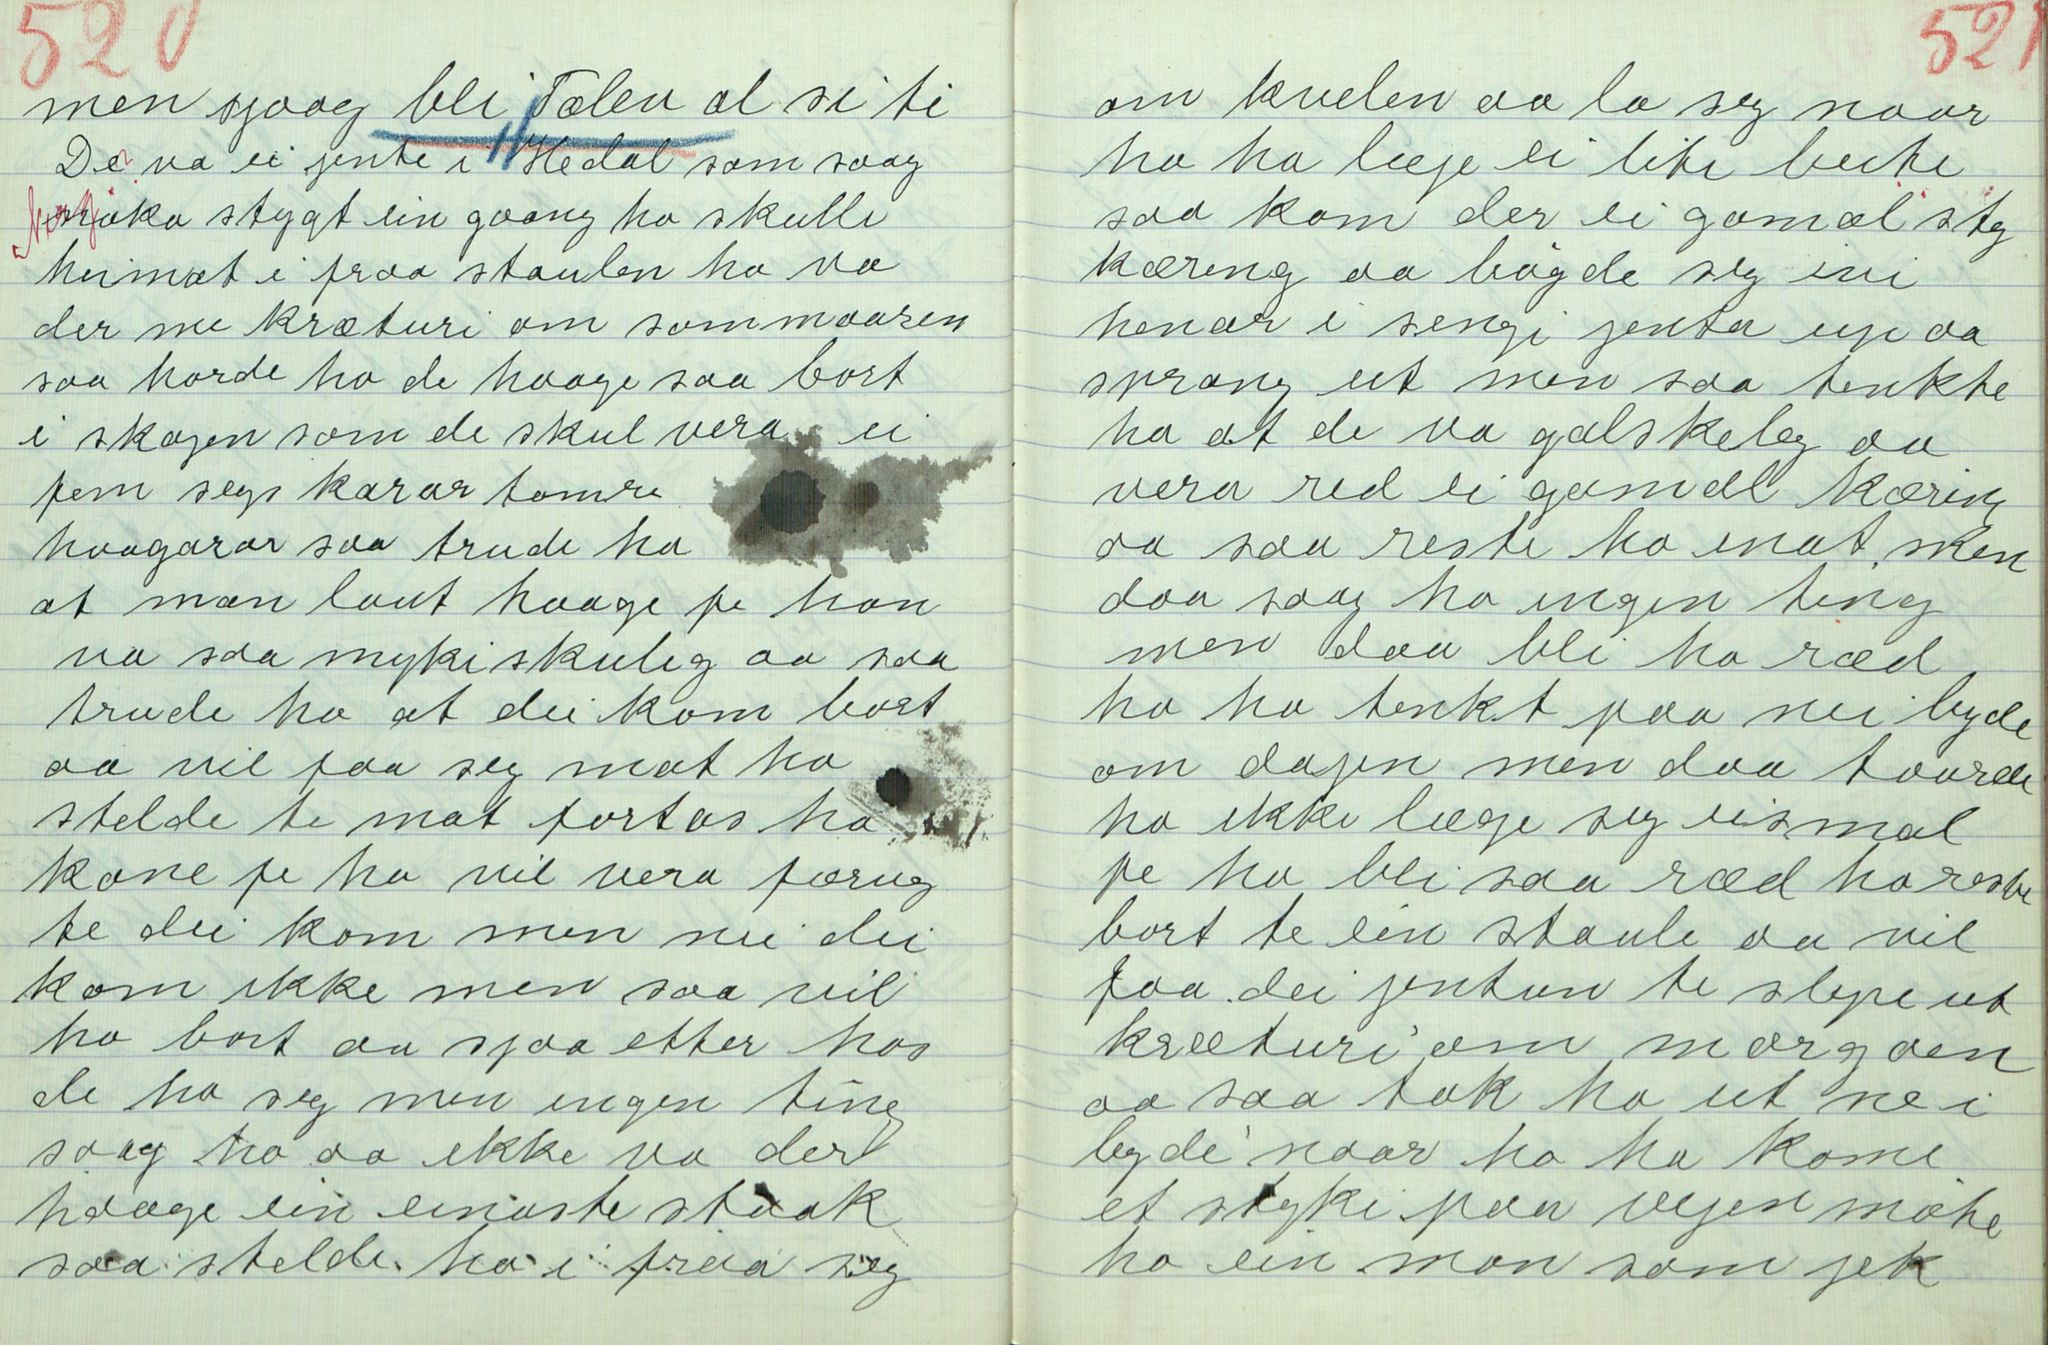 520
men sjaag bli Tælen al si ti
De va ei jente i Hedal som saag
noko stygt ein gaang ho skulle
heimat i fraa staulen ho va
der me kræturi om sommaaren
saa horde ho de haage saa bort
i skogen som de skul vera ei
fem segs karar tomre
haagarar saa trude ho
at man laut haage fe han
va saa myki skuleg aa saa
trude ho at dei kom bort
aa vil faa seg mat ho
stelde te mat fortas ho
kone fe ho vil vera færug
te dei kom men nei dei
kom ikke men saa vil
ho bort aa sjaa etter hos
de ha seg men ingen ting
saag ho aa ikke va der
haage ein einaste staak
saa stelde ho i fraa seg
521
om kvelen aa la seg naar
ho ha læje ei lite beite
saa kom der ei gamæl styg
kæring aa bøgde seg ini
henar i sengi jenta up aa
sprang ut men saa tenkte
ho at de va galskeleg aa
vera red ei gamæl kæring
aa saa reste ho inat men
daa saag ho ingen ting
men daa bli ho ræd
ho ha tenkt paa nei byde
om dagen men daa taarde
ho ikke læge seg eismal
fe ho bli saa ræd ho reste
bort te ein staule aa vil
faa dei jentun te slepe ut
kræturi om margaen
aa saa tok ho ut ne i
byde naar ho ha kome
et styki paa vejen møtte
ho ein man som jek